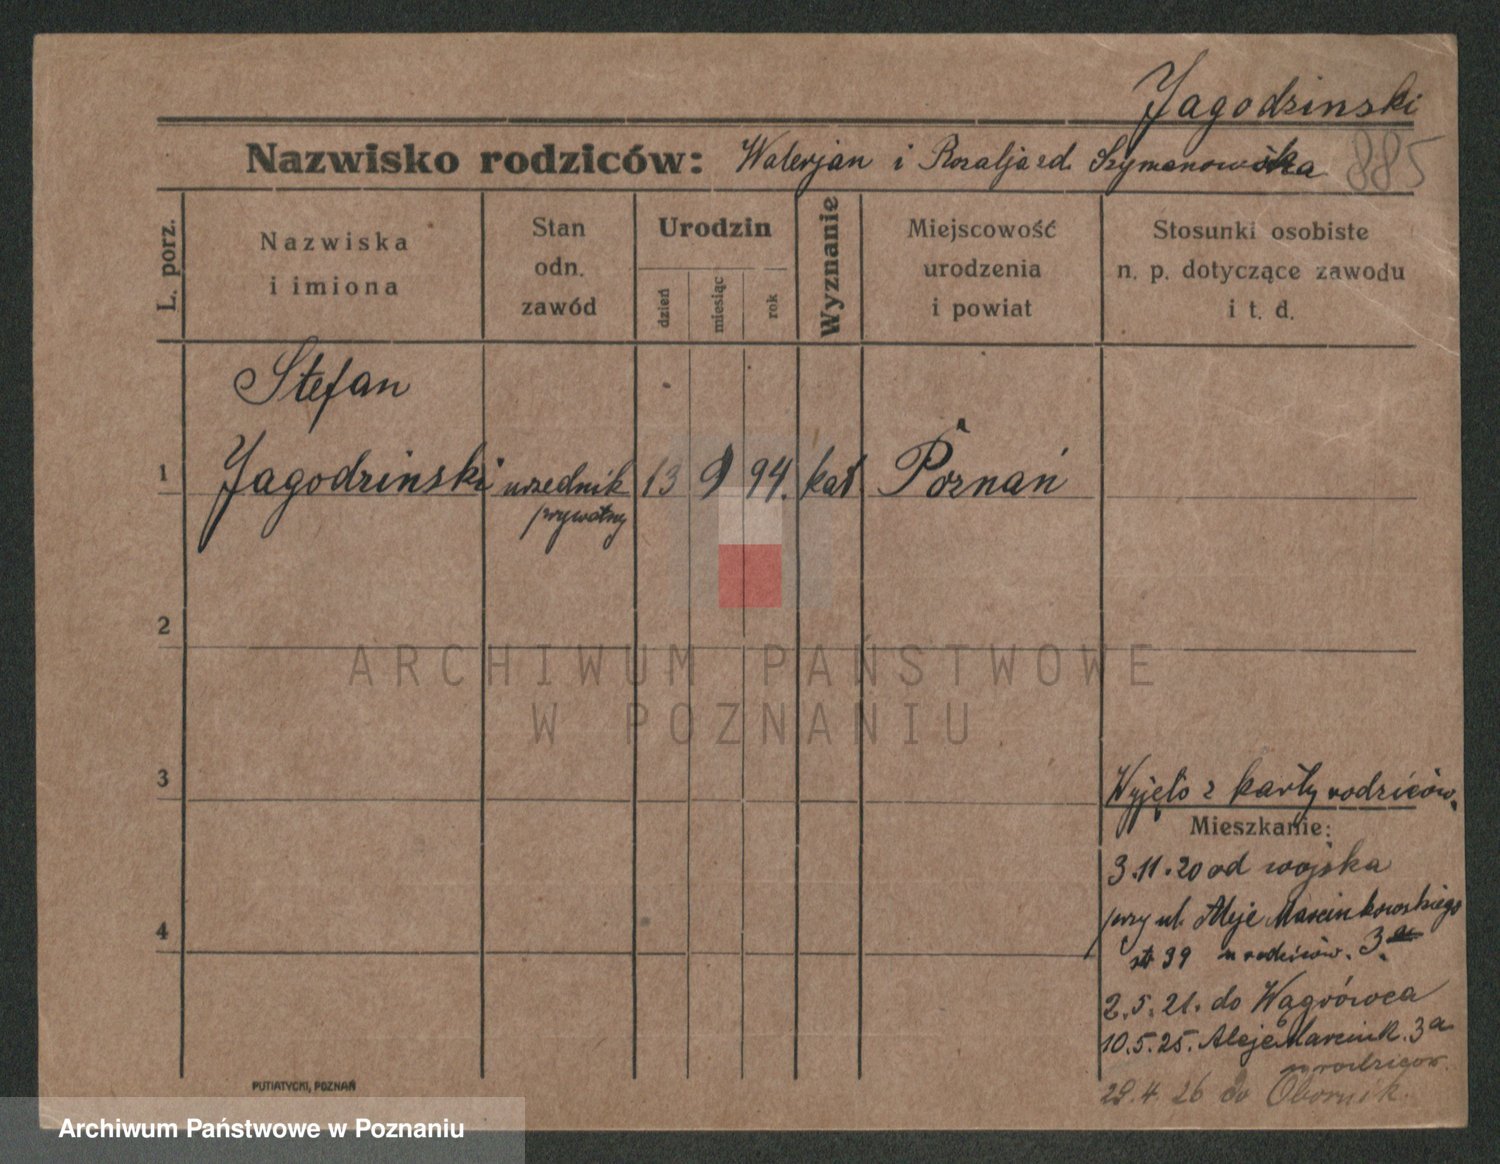 Jagodzinski
Nazwisko rodziców: Walerjan i Rozalja zd. Szymanowska 885
L. porz.
Nazwiska
i imiona
Stan
odn.
zawód
Urodzin
dzień
miesiąc
rok
Wyznanie
Miejscowość
urodzenia
i powiat
Stosunki osobiste
n. p. dotyczące zawodu
i t. d.
Stefan
1 Jagodzinski urzednik 13 9 94. kat Poznań
prywatny
2
ARCHIWUM PAŃSTWOWE
W POZNANIU
3
Wyjęto z karty rodziców.
Mieszkanie:
3.11.20 od wojska
przy ul. Aleje Marcinkowskiego
39 u rodziców. 3a
4
2.5.21. do Wągrówca
10.5.25. Aleje Marcink. 3a
u rodzicow.
29.4.26 do Obornik.
PUTIATYCKI, POZNAŃ
Archiwum Państwowe w Poznaniu